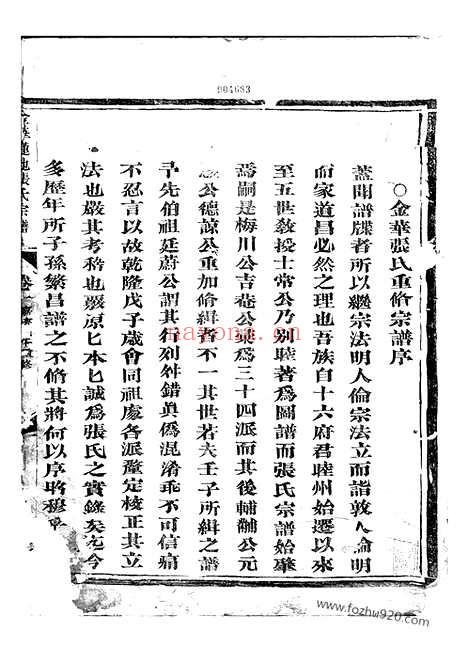 904683
○金華張氏重脩宗譜序
蓋聞譜牒者所以繼宗法明人倫宗法立而誼敦人倫明
而家道昌必然之理也吾族自十六府君睦州始遷以來
至五世敎授士常公乃別睦著為圖譜而張氏宗譜始肇
焉嗣是梅川公吉菴公衍為三十四派而其後輔黼公元
公德諒公重加脩緝者不一其世若夫壬子所緝之譜
予先伯祖廷蔚公謂其行列舛錯眞僞混淆乖不可信痛
不忍言以故乾隆戊子歲會同祖處各派釐定核正其立
法也嚴其考稽也覈原原本本誠為張氏之實錄矣迄今
多歷年所子孫繁昌譜之不脩其將何以序昭穆
氏宗譜
卷
nayona.cn
www.fozhu920.com